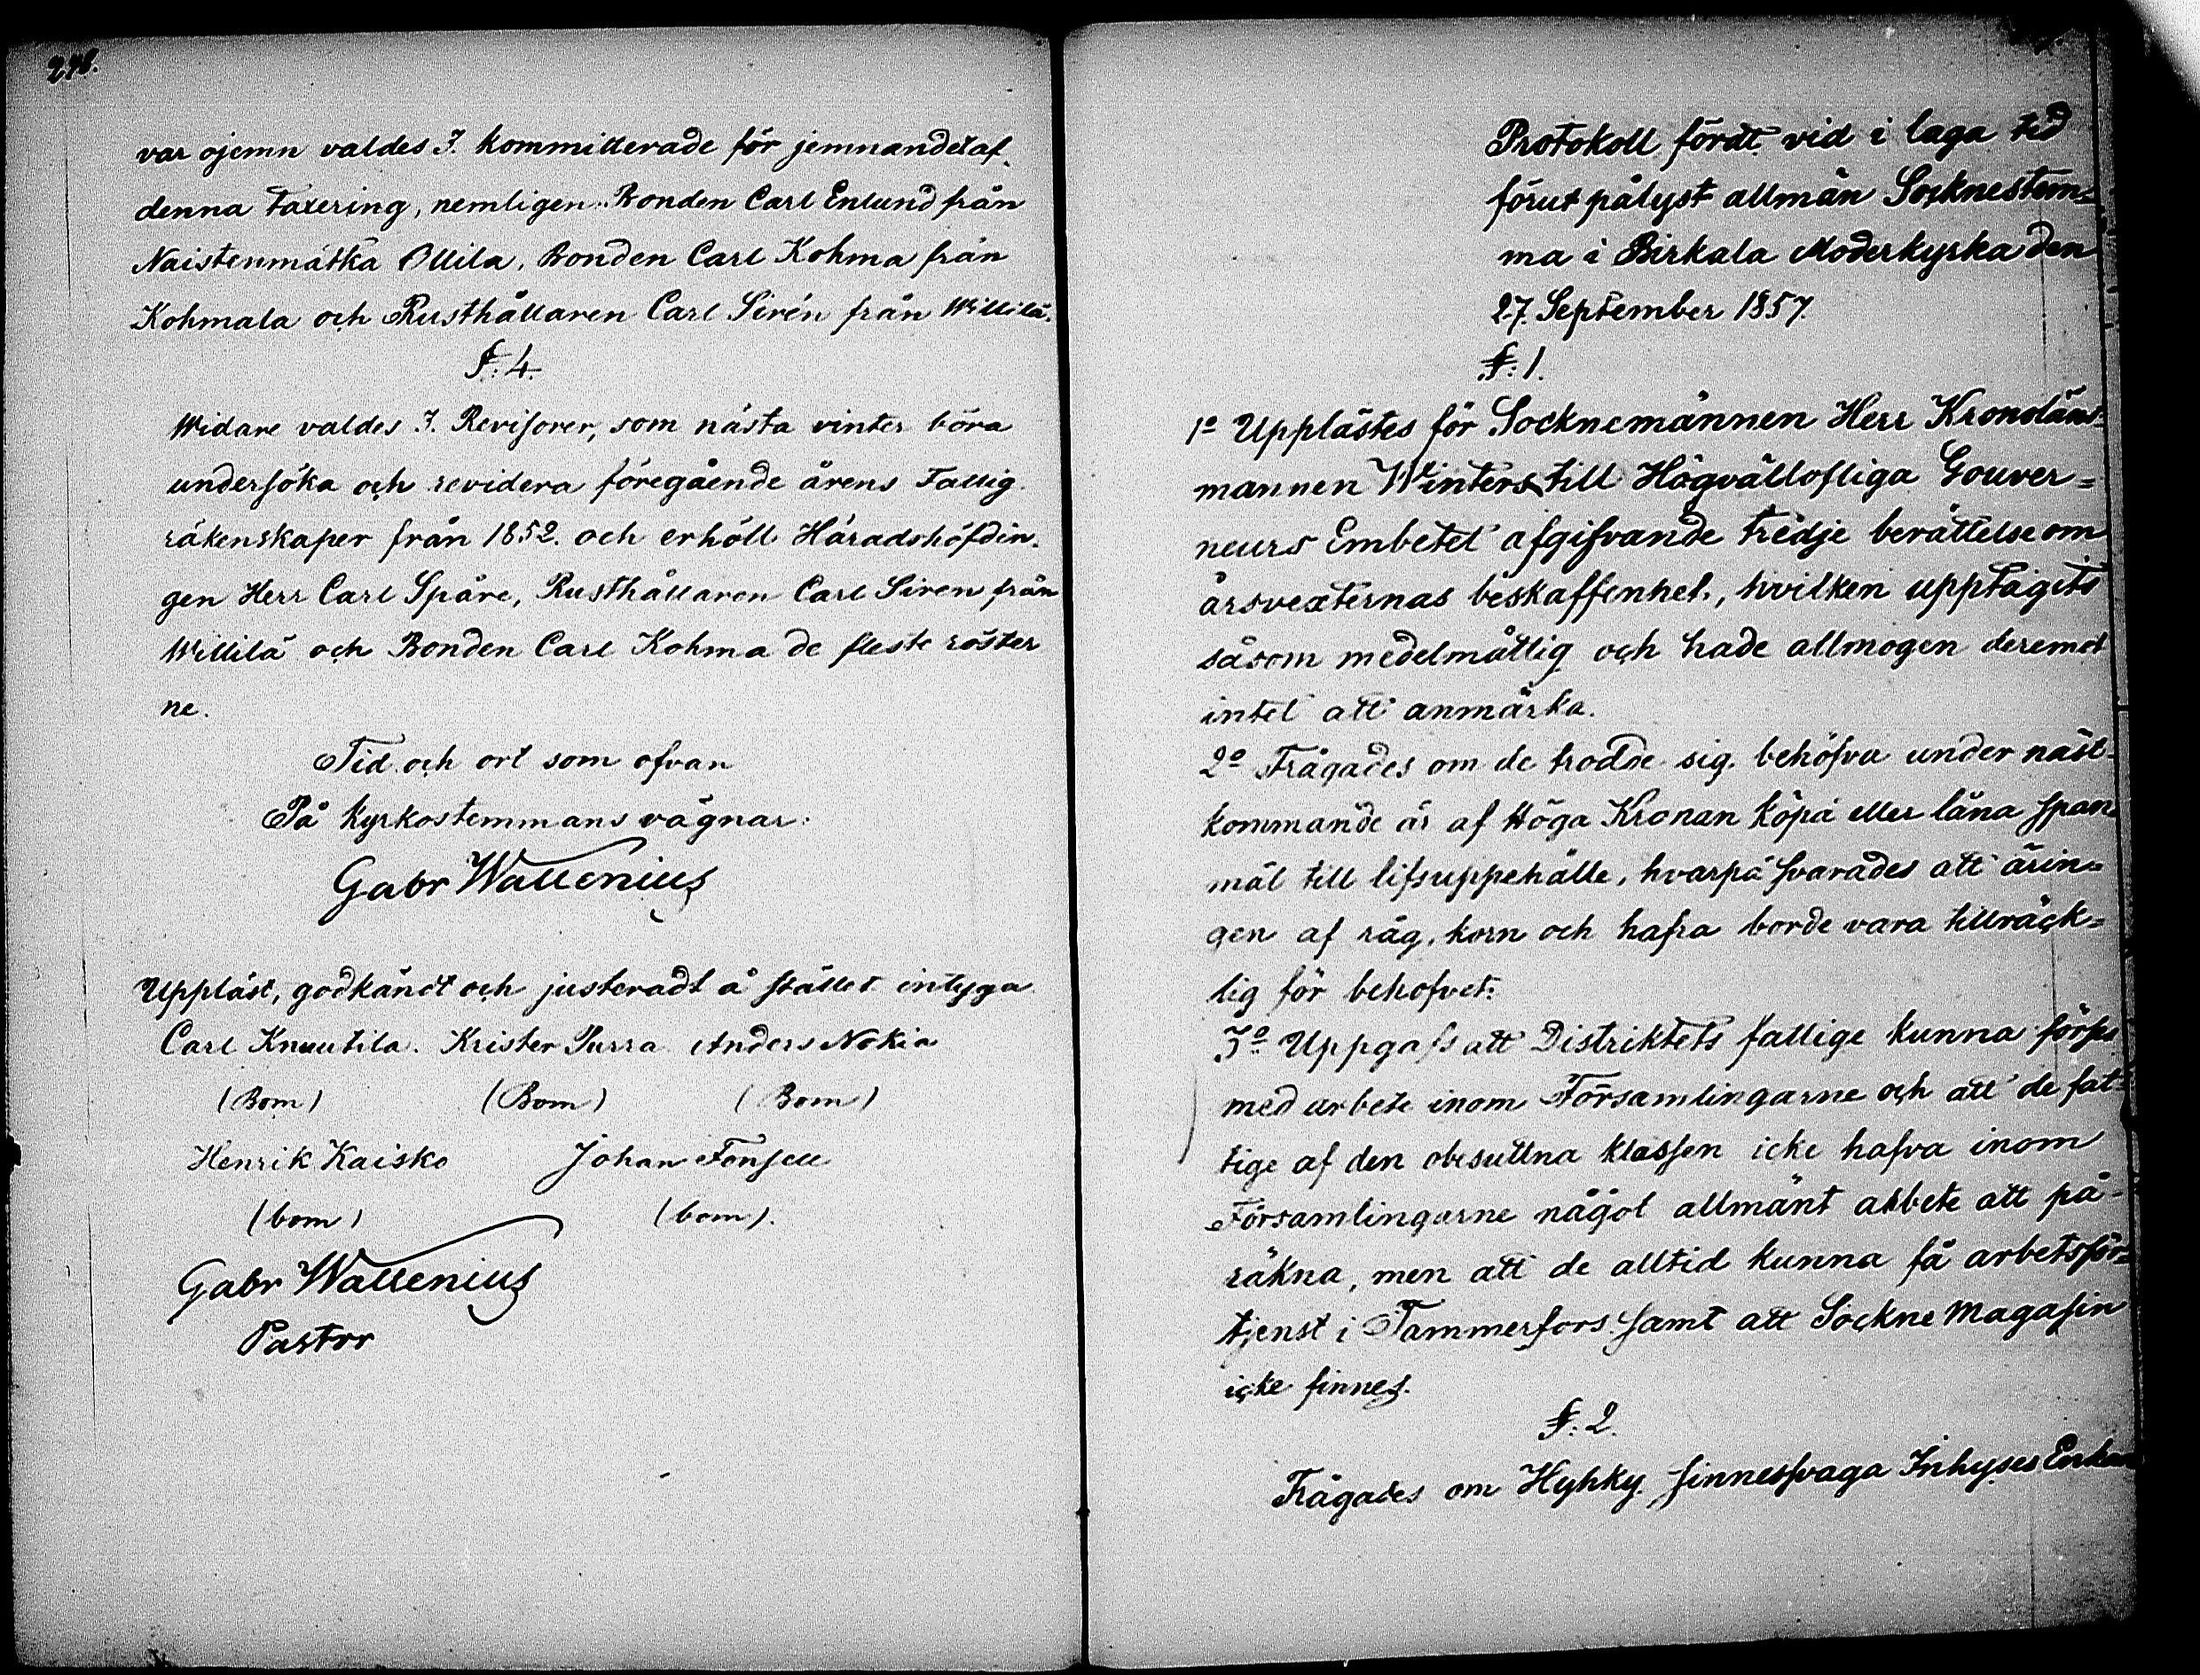 248.
var ojemn valdes 3. kommitterade för jemnandet af
denna Taxering, nemligen: Bonden Carl Enlund från
Naistenmatka Ollila, Bonden Carl Kohma från
Kohmala och Rusthållaren Carl Sirén från Willilä.
§. 4.
Widare valdes 3. Revisorer, som nästa vinter böra
undersöka och revidera föregående årens Fattig
räkenskaper från 1852. och erhöll Häradshöfdin-
gen Herr Carl Spåre, Rusthållaren Carl Siren från
Willilä och Bonden Carl Kohma de fleste röster
ne.
Tid och ort som ofvan
På Kyrkostemmans vägnar:
Gabr Wallenius
Uppläst, godkändt och justeradt å stället intyga
Carl Knuutila. Krister Purra Anders Nokia
(Bom) (Bom) (Bom)
Henrik Kaisko Johan Fonsell
(bom) (bom).
Gabr Wallenius
Pastor
Protokoll fördt vid i laga tid
förut pålyst allmän Socknestem-
ma i Birkala Moderkyrka den
27. September 1857.
§. 1.
1o Upplästes för Socknemännen Herr Kronoläns-
mannen Winters till Högvällofliga Gouver=
neurs Embetet afgifvande tredje berättelse om
årsvexternas beskaffenhet, hvilken upptagits
såsom medelmåttig och hade allmogen deremot
intet att anmärka.
2o Frågades om de trodde sig behöfva under näst-
kommande år af Höga Kronan köpa eller låna span-
mål till lifsuppehälle, hvarpå svarades att ärin=
gen af råg, korn och hafra borde vara tillräck=
lig för behofvet.
3o Uppgafs att Distriktets fattige kunna förses
med arbete inom Församlingarne och att de fat-
tige af den obesuttna klassen icke hafva inom
Församlingarne något allmänt arbete att på-
räkna, men att de alltid kunna få arbetsför-
tjenst i Tammerfors samt att Sockne Magasin
icke finnes.
§. 2.
Frågades om Hyhky sinnessvaga Inhyses